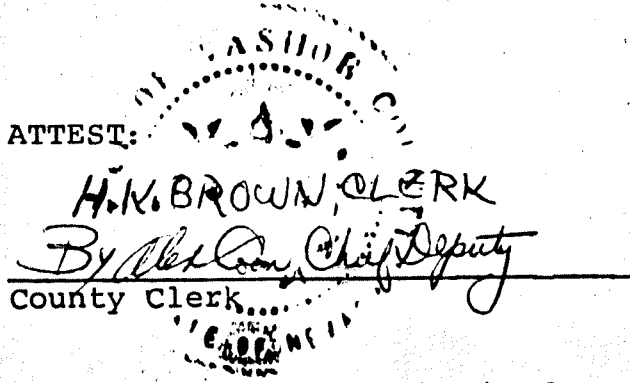 OF WASHOE CO
ATTEST:
H.K. BROWN, CLERK
By Alex Coon, Chief Deputy
County Clerk